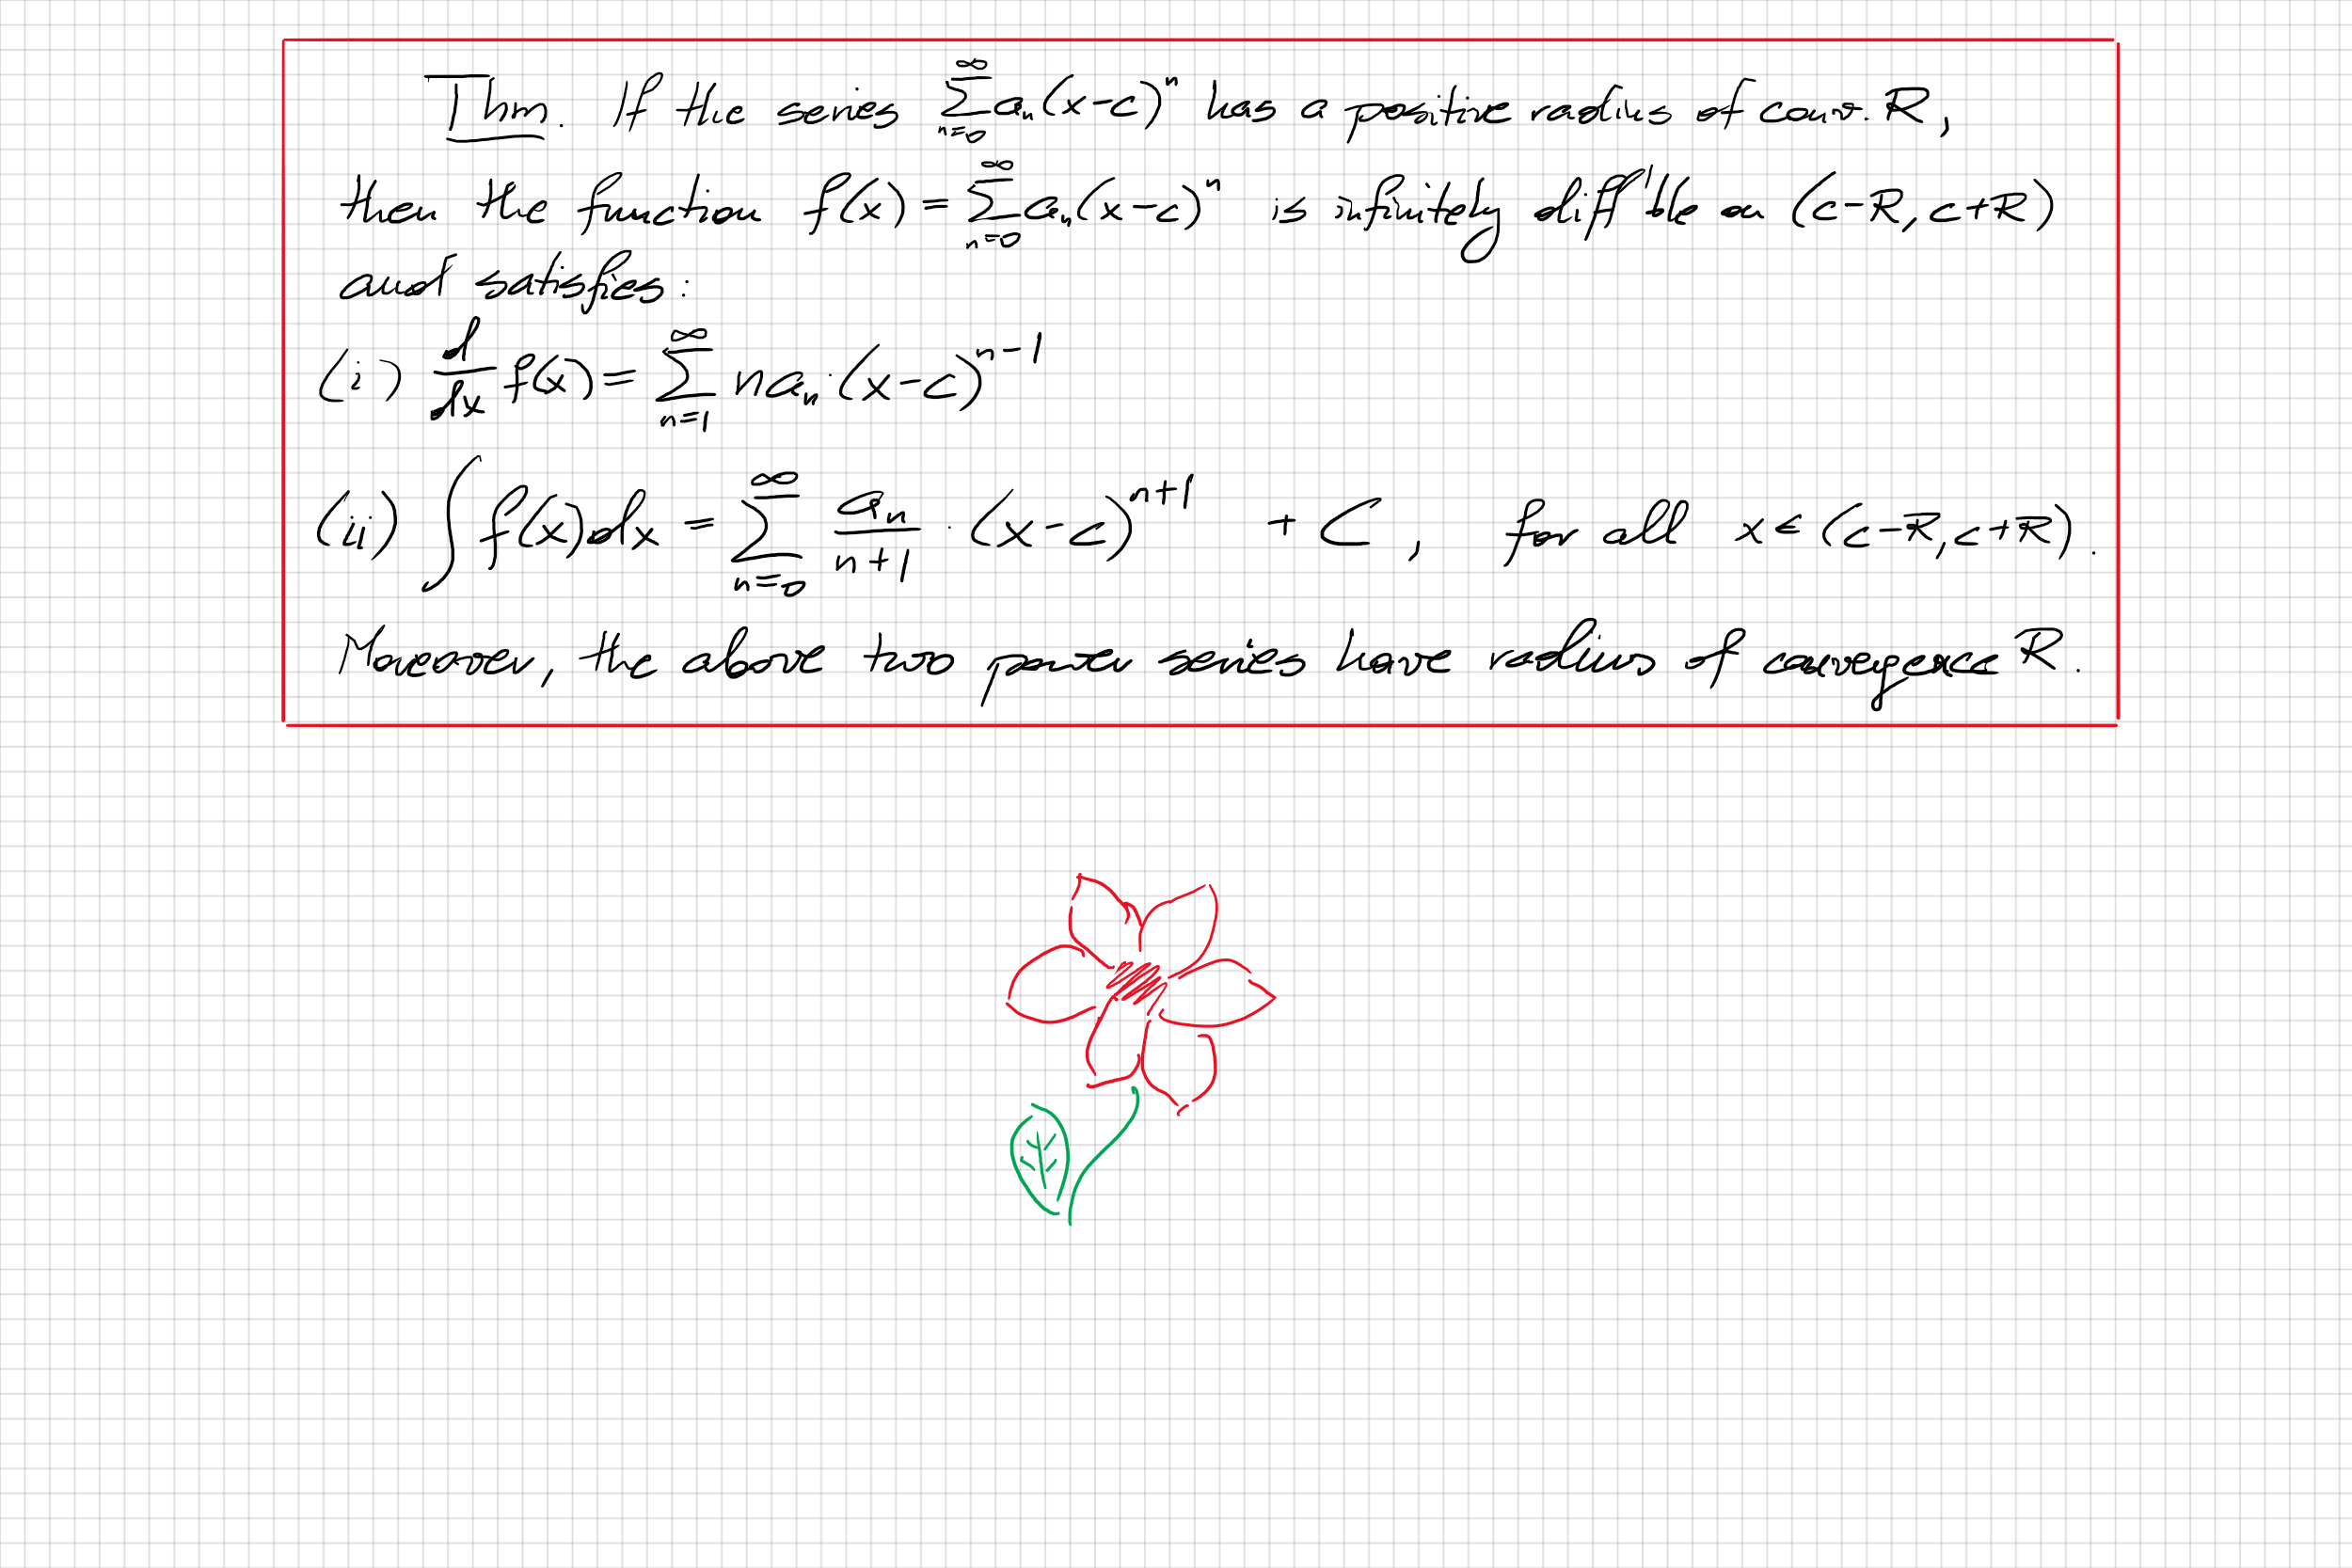 Thm. If the series $\sum_{n=0}^{\infty} a_n (x-c)^n$ has a positive radius of conv. R,
then the function $f(x) = \sum_{n=0}^{\infty} a_n (x-c)^n$ is infinitely diff'ble on (c-R, c+R)
and satisfies:
(i) $\frac{d}{dx} f(x) = \sum_{n=1}^{\infty} n a_n \cdot (x-c)^{n-1}$
(ii) $\int f(x) dx = \sum_{n=0}^{\infty} \frac{a_n}{n+1} \cdot (x-c)^{n+1} + C$, for all $x \in (c-R, c+R)$.
Moreover, the above two power series have radius of convergence R.